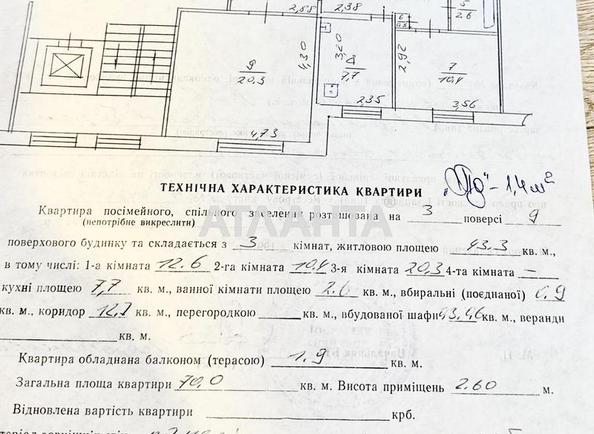 2,58 2,38 5 2.6
9 20,5 4,30 3,20 7,7 6 2,92 7 10,4
2.35 3,56
4,73
ТЕХНІЧНА ХАРАКТЕРИСТИКА КВАРТИРИ - 1,4 м²
Квартира посімейного, спільного заселення розташована на 3 поверсі 9
(непотрібне викреслити)
АТЛАНТА®
поверхового будинку та складається з 3 кімнат, житловою площею 43.3 кв. м.,
в тому числі: 1-а кімната 12.6 2-га кімната 10,4 3-я кімната 20,3 4-та кімната —
кухні площею 7,7 кв. м., ванної кімнати площею 2.6 кв. м., вбиральні (поєднаної) 0.9
кв. м., коридор 12,7 кв. м., перегородкою кв. м., вбудованої шафи кв. м., веранди
кв. м.
Квартира обладнана балконом (терасою) 1.9 кв. м.
Загальна площа квартири 70,0 кв. м. Висота приміщень 2.60 м.
Відновлена вартість квартири крб.